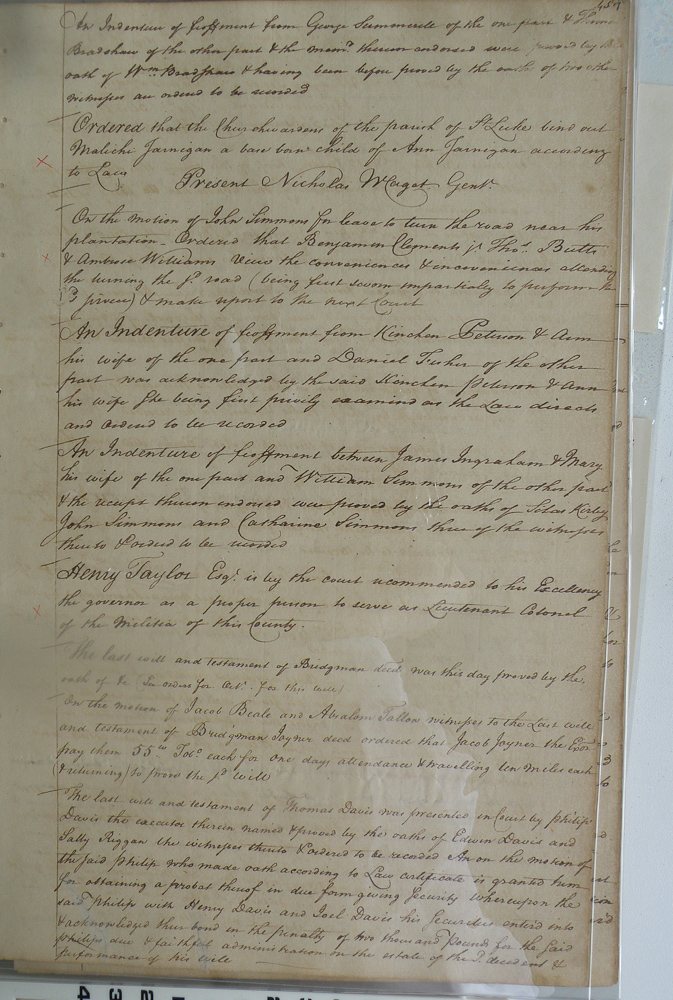 457
An Indenture of feoffment from George Summerell of the one part & Thomas
Bradshaw of the other part & the memº therein endorsed were proved by the
oath of Wm Bradshaw & having been before proved by the oaths of two other
witnesses are ordered to be recorded
Ordered that the Churchwardens of the parish of St Luke bind out
Malichi Jarnigan a base born child of Ann Jarnigan according
to Law
Present Nicholas Maget Gent.
On the motion of John Simmons for leave to turn the road near his
plantation - Ordered that Benjamin Clements jr Thos. Butts
& Ambrose Williams View the conveniences & inconveniences attending
the turning the sd. road (being first sworn impartially to perform the
) & make report to the next Court
An Indenture of feoffment from Kinchen Peterson & Ann
his wife of the one part and Daniel Fisher of the other
part was acknowledged by the said Kinchen Peterson & Ann
his wife she being first privily examined as the Law directs
and ordered to be recorded
An Indenture of feoffment between James Ingraham & Mary
his wife of the one part and William Simmons of the other part
& the receipt thereon endorsed were proved by the oaths of Silas Kirby
John Simmons and Catharine Simmons three of the witnesses
thereto & ordered to be recorded
Henry Taylor Esqr. is by the court recommended to his Excellency
the governor as a proper person to serve as Lieutenant Colonel
of the Militia of this County.
The last will and testament of Bridgman decd was this day proved by the
oath of &c (In orders for Octr. for this will)
On the motion of Jacob Beale and Absalom Tallow witnesses to the Last will
and testament of Bridgman Joyner decd ordered that Jacob Joyner the Exor
pay them 55 lb Tobo. each for one days attendance & travelling ten miles each
(& returning) to prove the sd will
The last will and testament of Thomas Davis was presented in Court by philip
Davis the executor therein named & proved by the oaths of Edwin Davis and
Sally Riggan the witnesses thereto & ordered to be recorded An on the motion of
the said philip who made oath according to Law certificate is granted him
for obtaining a probat thereof in due form giving Security whereupon the
said Philip with Henry Davis and Joel Davis his Securities enter'd into
& acknowledged their bond in the penalty of two thousand pounds for the said
philips due & faithful administration on the estate of the sd. decedent &
performance of his will
4 3 2 1